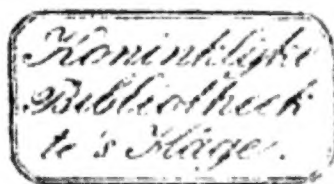 Koninklyke
Bibliotheek
te 's Hage.